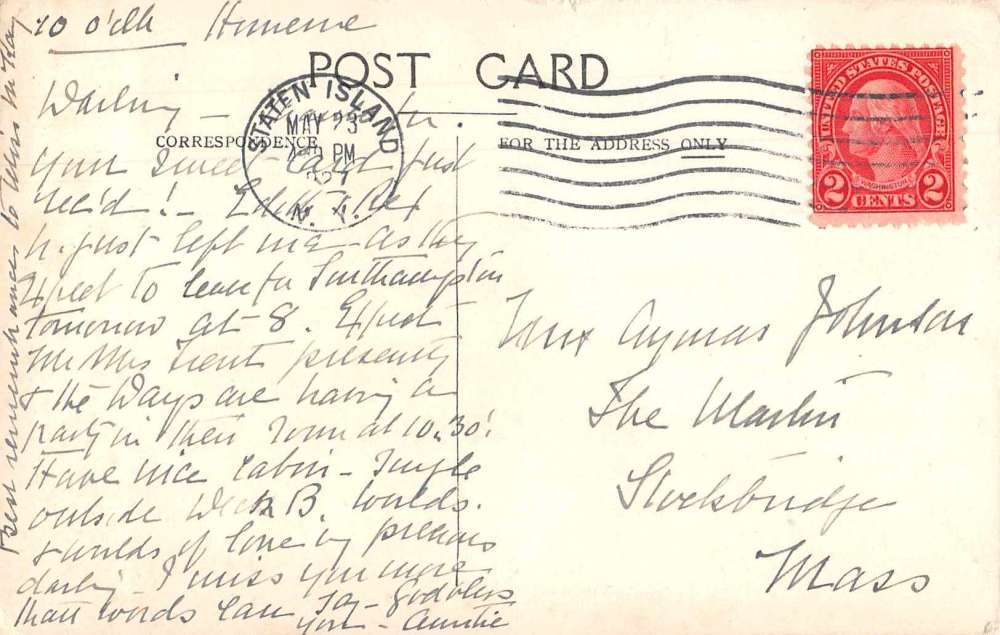 10 o'clk Homeric
POST CARD
CORRESPONDENCE
FOR THE ADDRESS ONLY
STATEN ISLAND
MAY 23
PM
N. Y.
UNITED STATES POSTAGE
WASHINGTON
2 CENTS 2
Darling —
Your sweet just
rec'd! — Rex
h. just left me — as they
expect to leave for Southampton
tomorrow at 8. Expect
Mr Mrs Trent presently
& the Ways are having a
party in their room at 10.30!
Have nice cabin — single
outside Deck B. Worlds
& worlds of love my precious
darling — I miss you more
than words can say — God bless
you — Auntie
Best remembrances to
Aymar Johnson
The Martin
Stockbridge
Mass